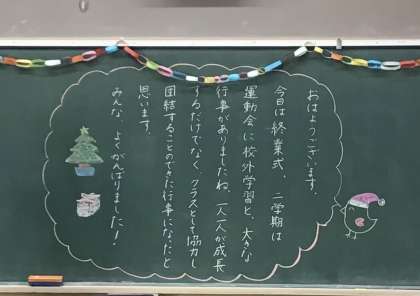 おはようございます。
今日は終業式。 二学期は
運動会に校外学習と、大きな
行事がありましたね。一人一人が成長
するだけでなく、クラスとして協力し
団結することのできた行事になったと
思います。
みんな、よくがんばりました！